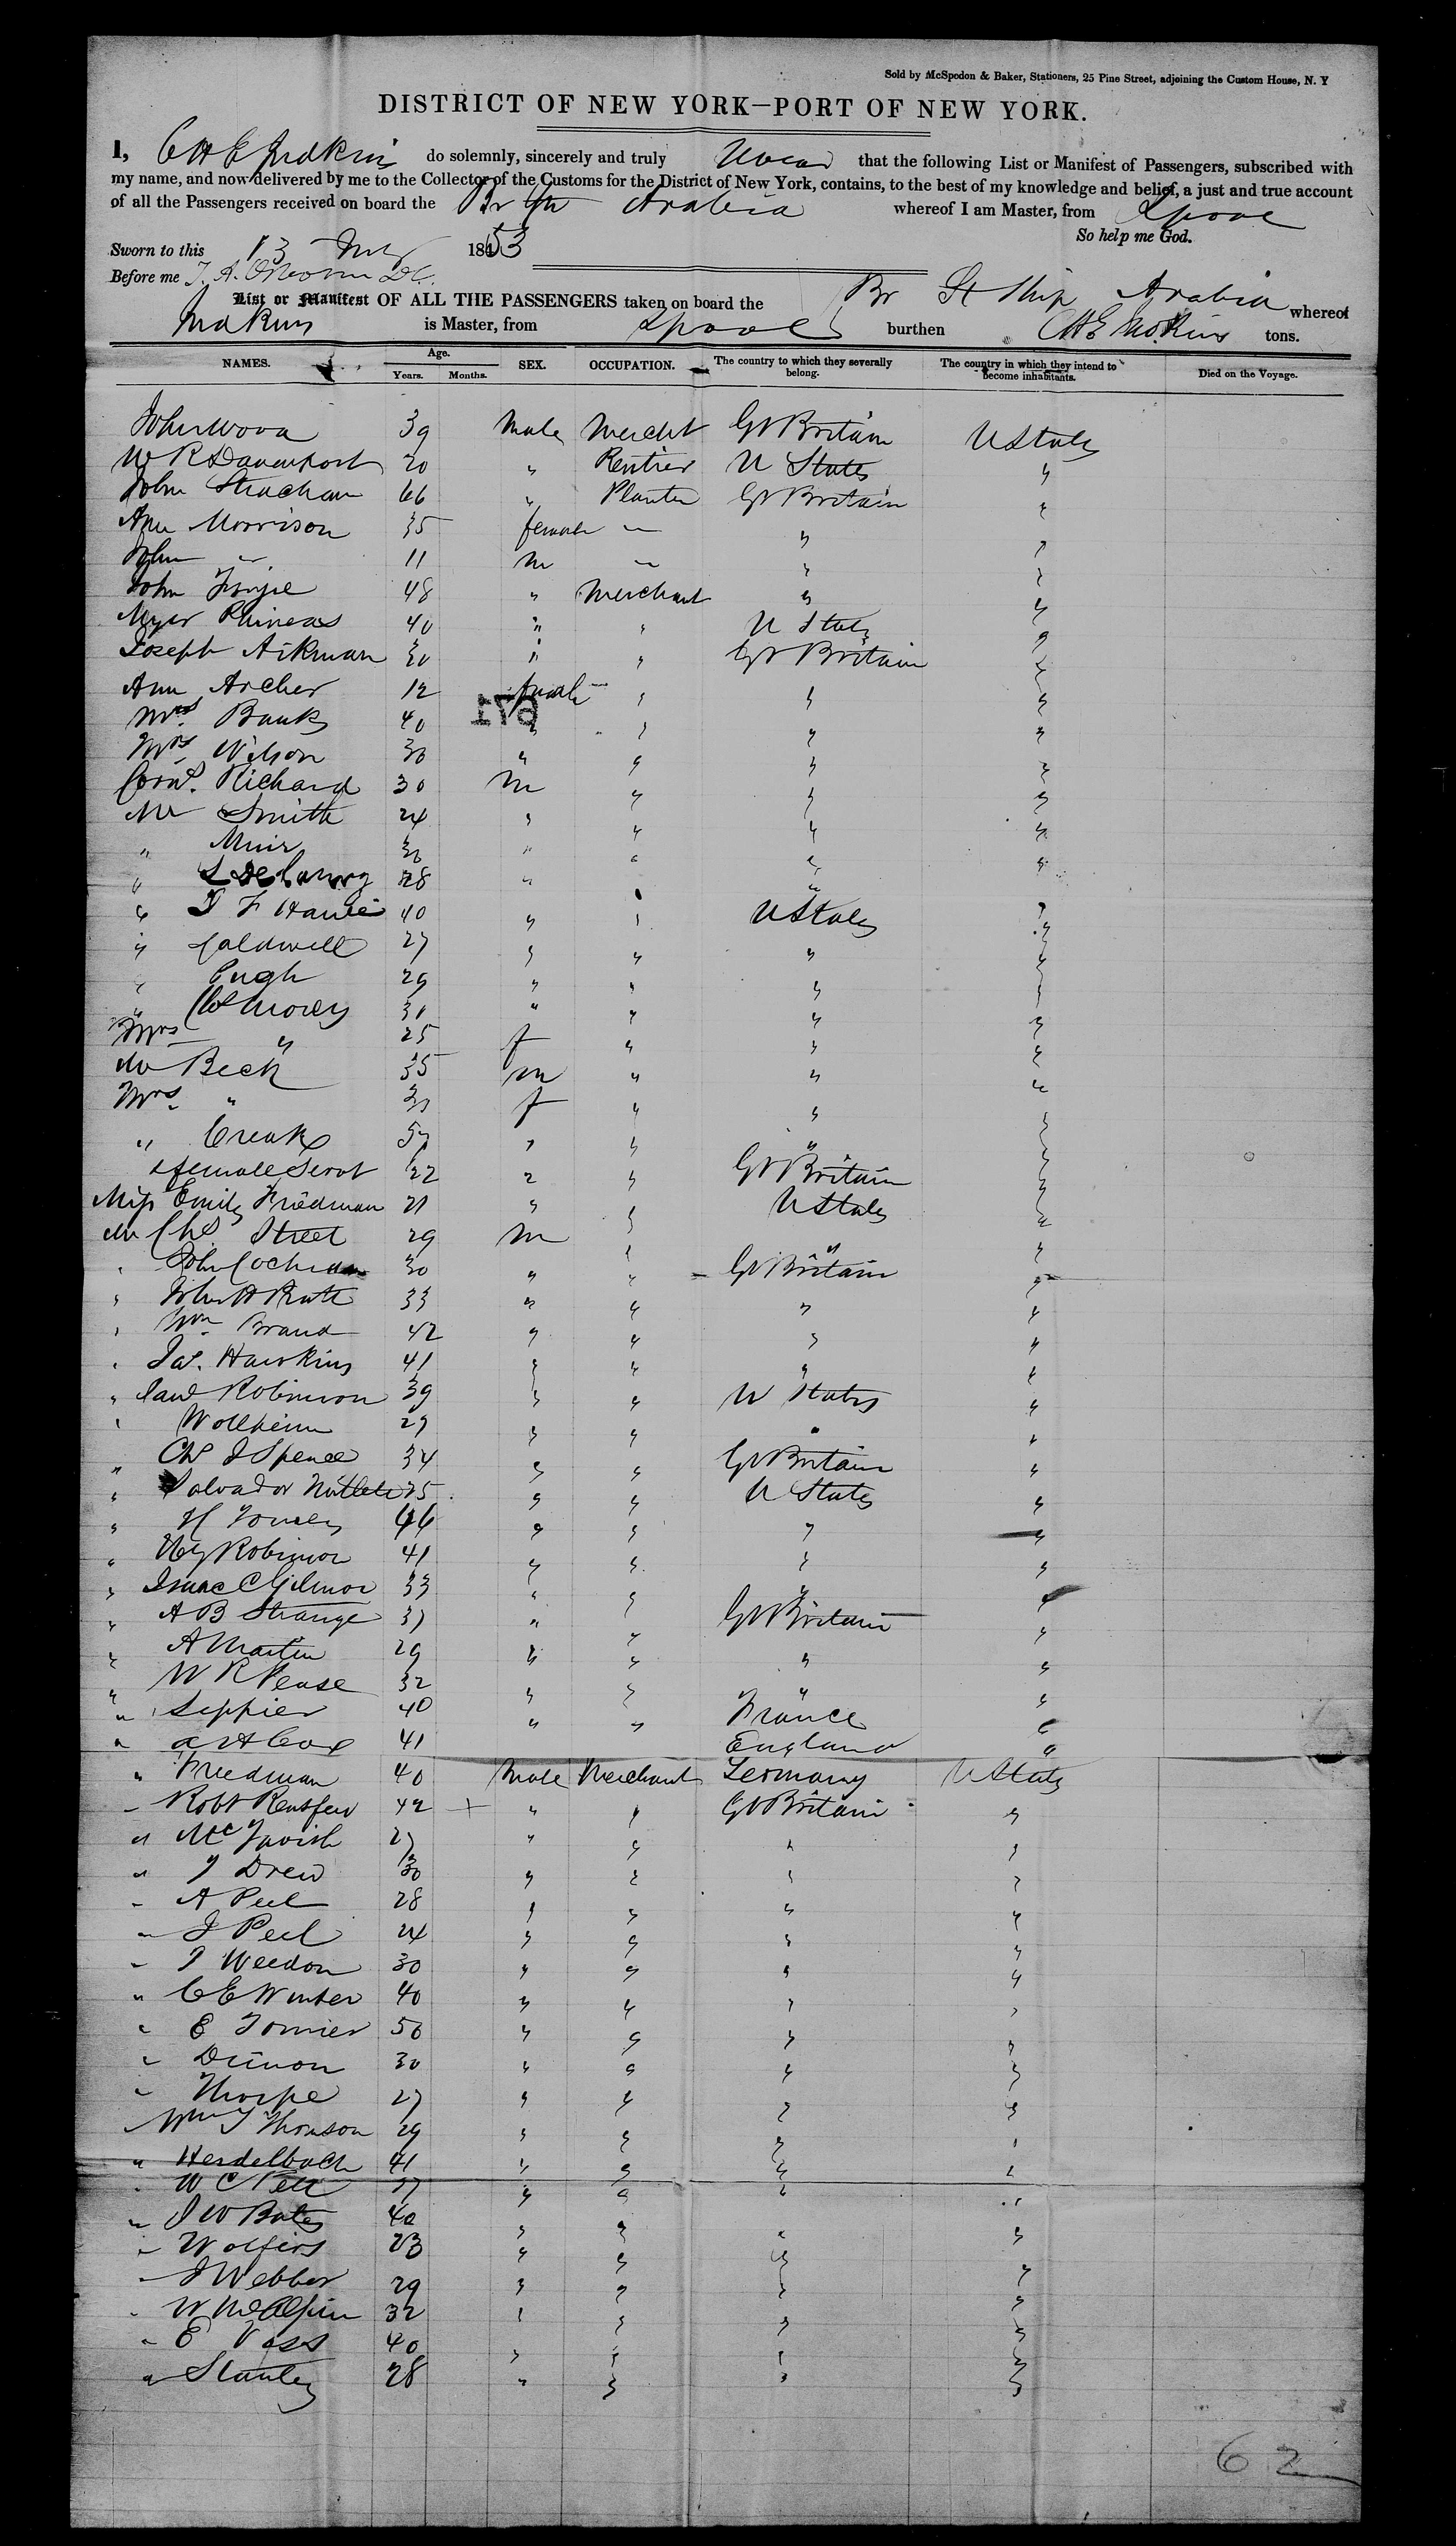 Sold by McSpedon & Baker, Stationers, 25 Pine Street, adjoining the Custom House, N. Y
DISTRICT OF NEW YORK—PORT OF NEW YORK.
I, C H E Judkins do solemnly, sincerely and truly Swear that the following List or Manifest of Passengers, subscribed with
my name, and now delivered by me to the Collector of the Customs for the District of New York, contains, to the best of my knowledge and belief, a just and true account
of all the Passengers received on board the Br Arabia whereof I am Master, from Lpool
So help me God.
Sworn to this 13 1853
Before me
List or Manifest OF ALL THE PASSENGERS taken on board the Br St Ship Arabia whereof
Judkins is Master, from Lpool burthen C H E Judkins tons.
NAMES. Age. Years. Months. SEX. OCCUPATION. The country to which they severally belong. The country in which they intend to become inhabitants. Died on the Voyage.
John 39 Male Mercht Gt Britain U States
W R Davenport 20 " Rentier U States "
John Strachan 66 " Planter Gt Britain "
Ann Morrison 35 female — " "
John " 11 m — " "
John 48 " Merchant " "
Myer Phineas 40 " " U States "
Joseph Aikman 30 " " Gt Britain "
Ann Archer 12 female " " "
179
Mrs Banks 40 " " " "
Mrs Wilson 30 " " " "
Richard 30 m " " "
Mr Smith 24 " " " "
" Muir 30 " " " "
" 28 " " " "
" 40 " " U States "
" Caldwell 27 " " " "
" Pugh 29 " " " "
" Morey 30 " " " "
Mrs " 25 f " " "
Mr Beck 35 m " " "
Mrs " 30 f " " "
" Creak " " " "
& female Servt 22 " " Gt Britain "
Miss Emily Friedman 21 " " U States "
Mr Chs Street 29 m " " "
" John Cochran 30 " " Gt Britain "
" John H 33 " " " "
" Wm Brand 42 " " " "
" Jas. Hawkins 41 " " " "
" Robinson 39 " " U States "
" Wollheim 27 " " " "
" Chs J Spence 34 " " Gt Britain "
" Salvador 25 " " U States "
" H 46 " " " "
" Hy Robinson 41 " " " "
" Isaac C Gilmor 33 " " " "
" A B Strange 37 " " Gt Britain "
" A Martin 29 " " " "
" W R Pease 32 " " " "
" Seppier 40 " " France "
" A H Cox 41 England "
" Friedman 40 Male Merchant Germany U States
" Robt 42 + " " Gt Britain "
" McTavish 27 " " " "
" J Drew 30 " " " "
" A Peel 28 " " " "
" J Peel 24 " " " "
" J Weedon 30 " " " "
" C E Winter 40 " " " "
" E 50 " " " "
" 30 " " " "
" Thorpe 27 " " " "
" Wm J Thomson 29 " " " "
" Heidelbach 41 " " " "
" W C Pell 27 " " " "
" J W Bates 40 " " " "
" Wolfers 23 " " " "
" J Webber 29 " " " "
" W McAlpin 32 " " " "
" E Voss 40 " " " "
" Stanley 28 " " " "
62